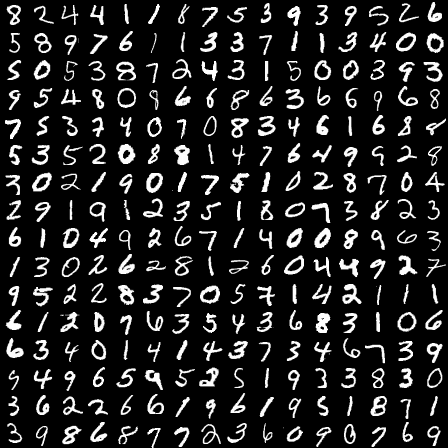 8 2 4 4 1 1 8 7 5 3 9 3 9 5 2 6
5 8 9 7 6 1 1 3 3 7 1 1 3 4 0 0
5 0 5 3 8 7 2 4 3 1 5 0 0 3 9 3
9 5 4 8 0 8 6 6 8 6 3 6 6 9 6 8
7 5 3 7 4 0 7 0 8 3 4 6 1 6 8 8
5 3 5 2 0 8 8 1 4 7 6 4 9 9 2 8
3 0 2 1 9 0 1 7 5 1 0 2 8 7 0 4
2 9 1 9 1 2 3 5 1 8 0 7 3 8 2 3
6 1 0 4 9 2 6 7 1 4 0 0 8 9 6 3
1 3 0 2 6 2 8 1 2 6 0 4 4 9 2 7
9 5 2 2 8 3 7 0 5 7 1 4 2 1 1 1
6 1 2 0 7 6 3 5 4 3 6 8 3 1 0 6
6 3 4 0 1 4 1 4 3 7 3 4 6 7 3 9
9 4 9 6 5 9 5 2 5 1 9 3 3 8 3 0
3 6 2 2 6 6 1 9 6 1 9 5 1 8 7 1
3 9 8 6 8 7 7 2 3 6 0 9 0 7 6 9